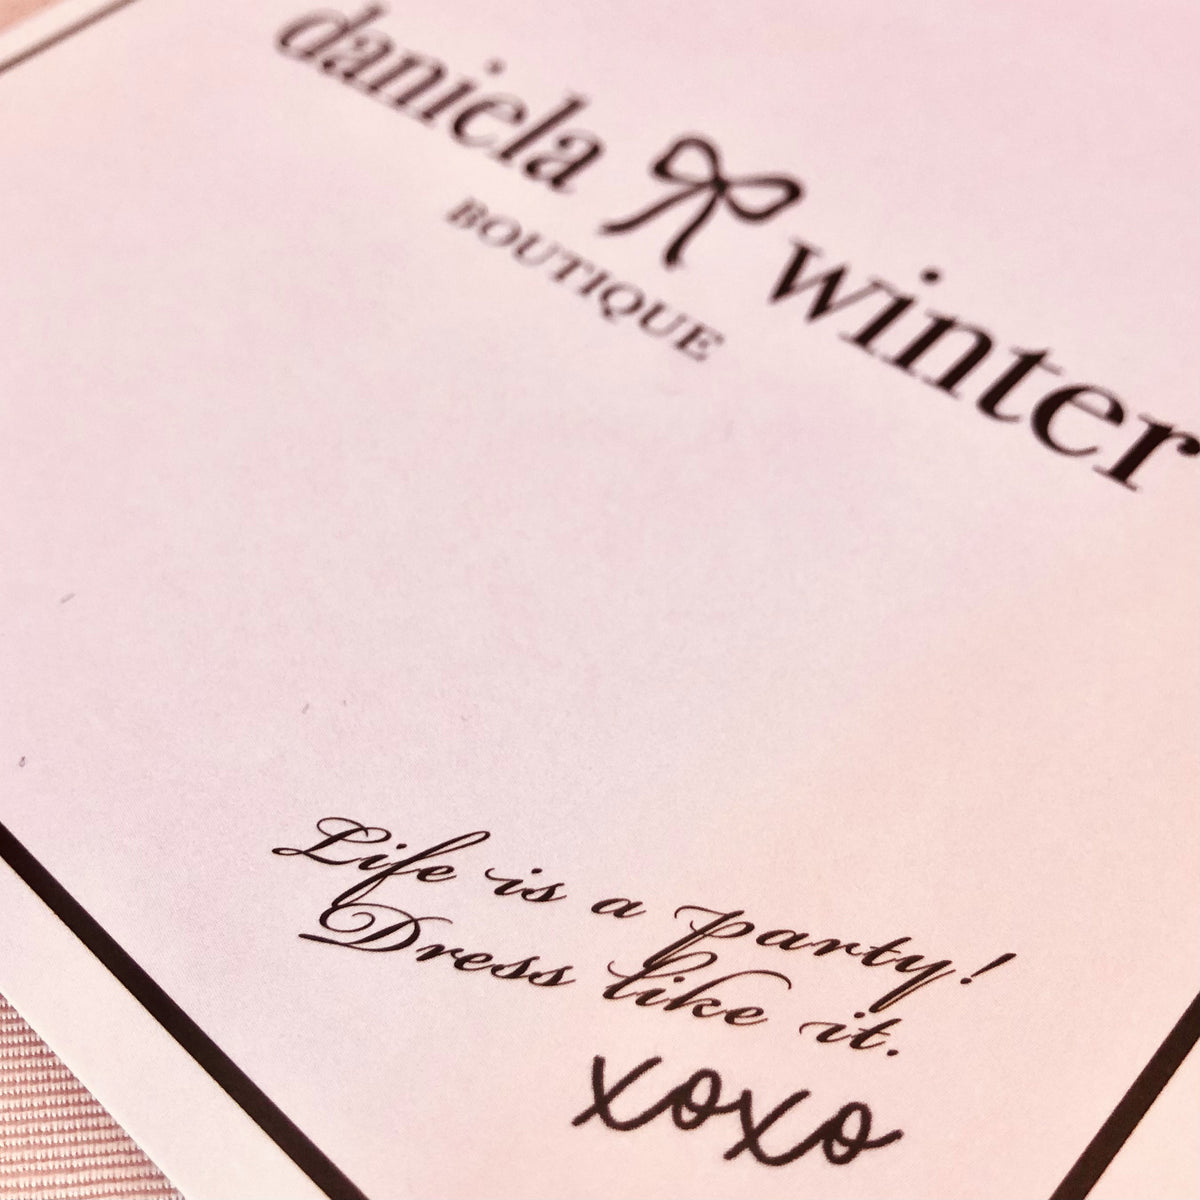 daniela winter
BOUTIQUE
Life is a party!
Dress like it.
xoxo